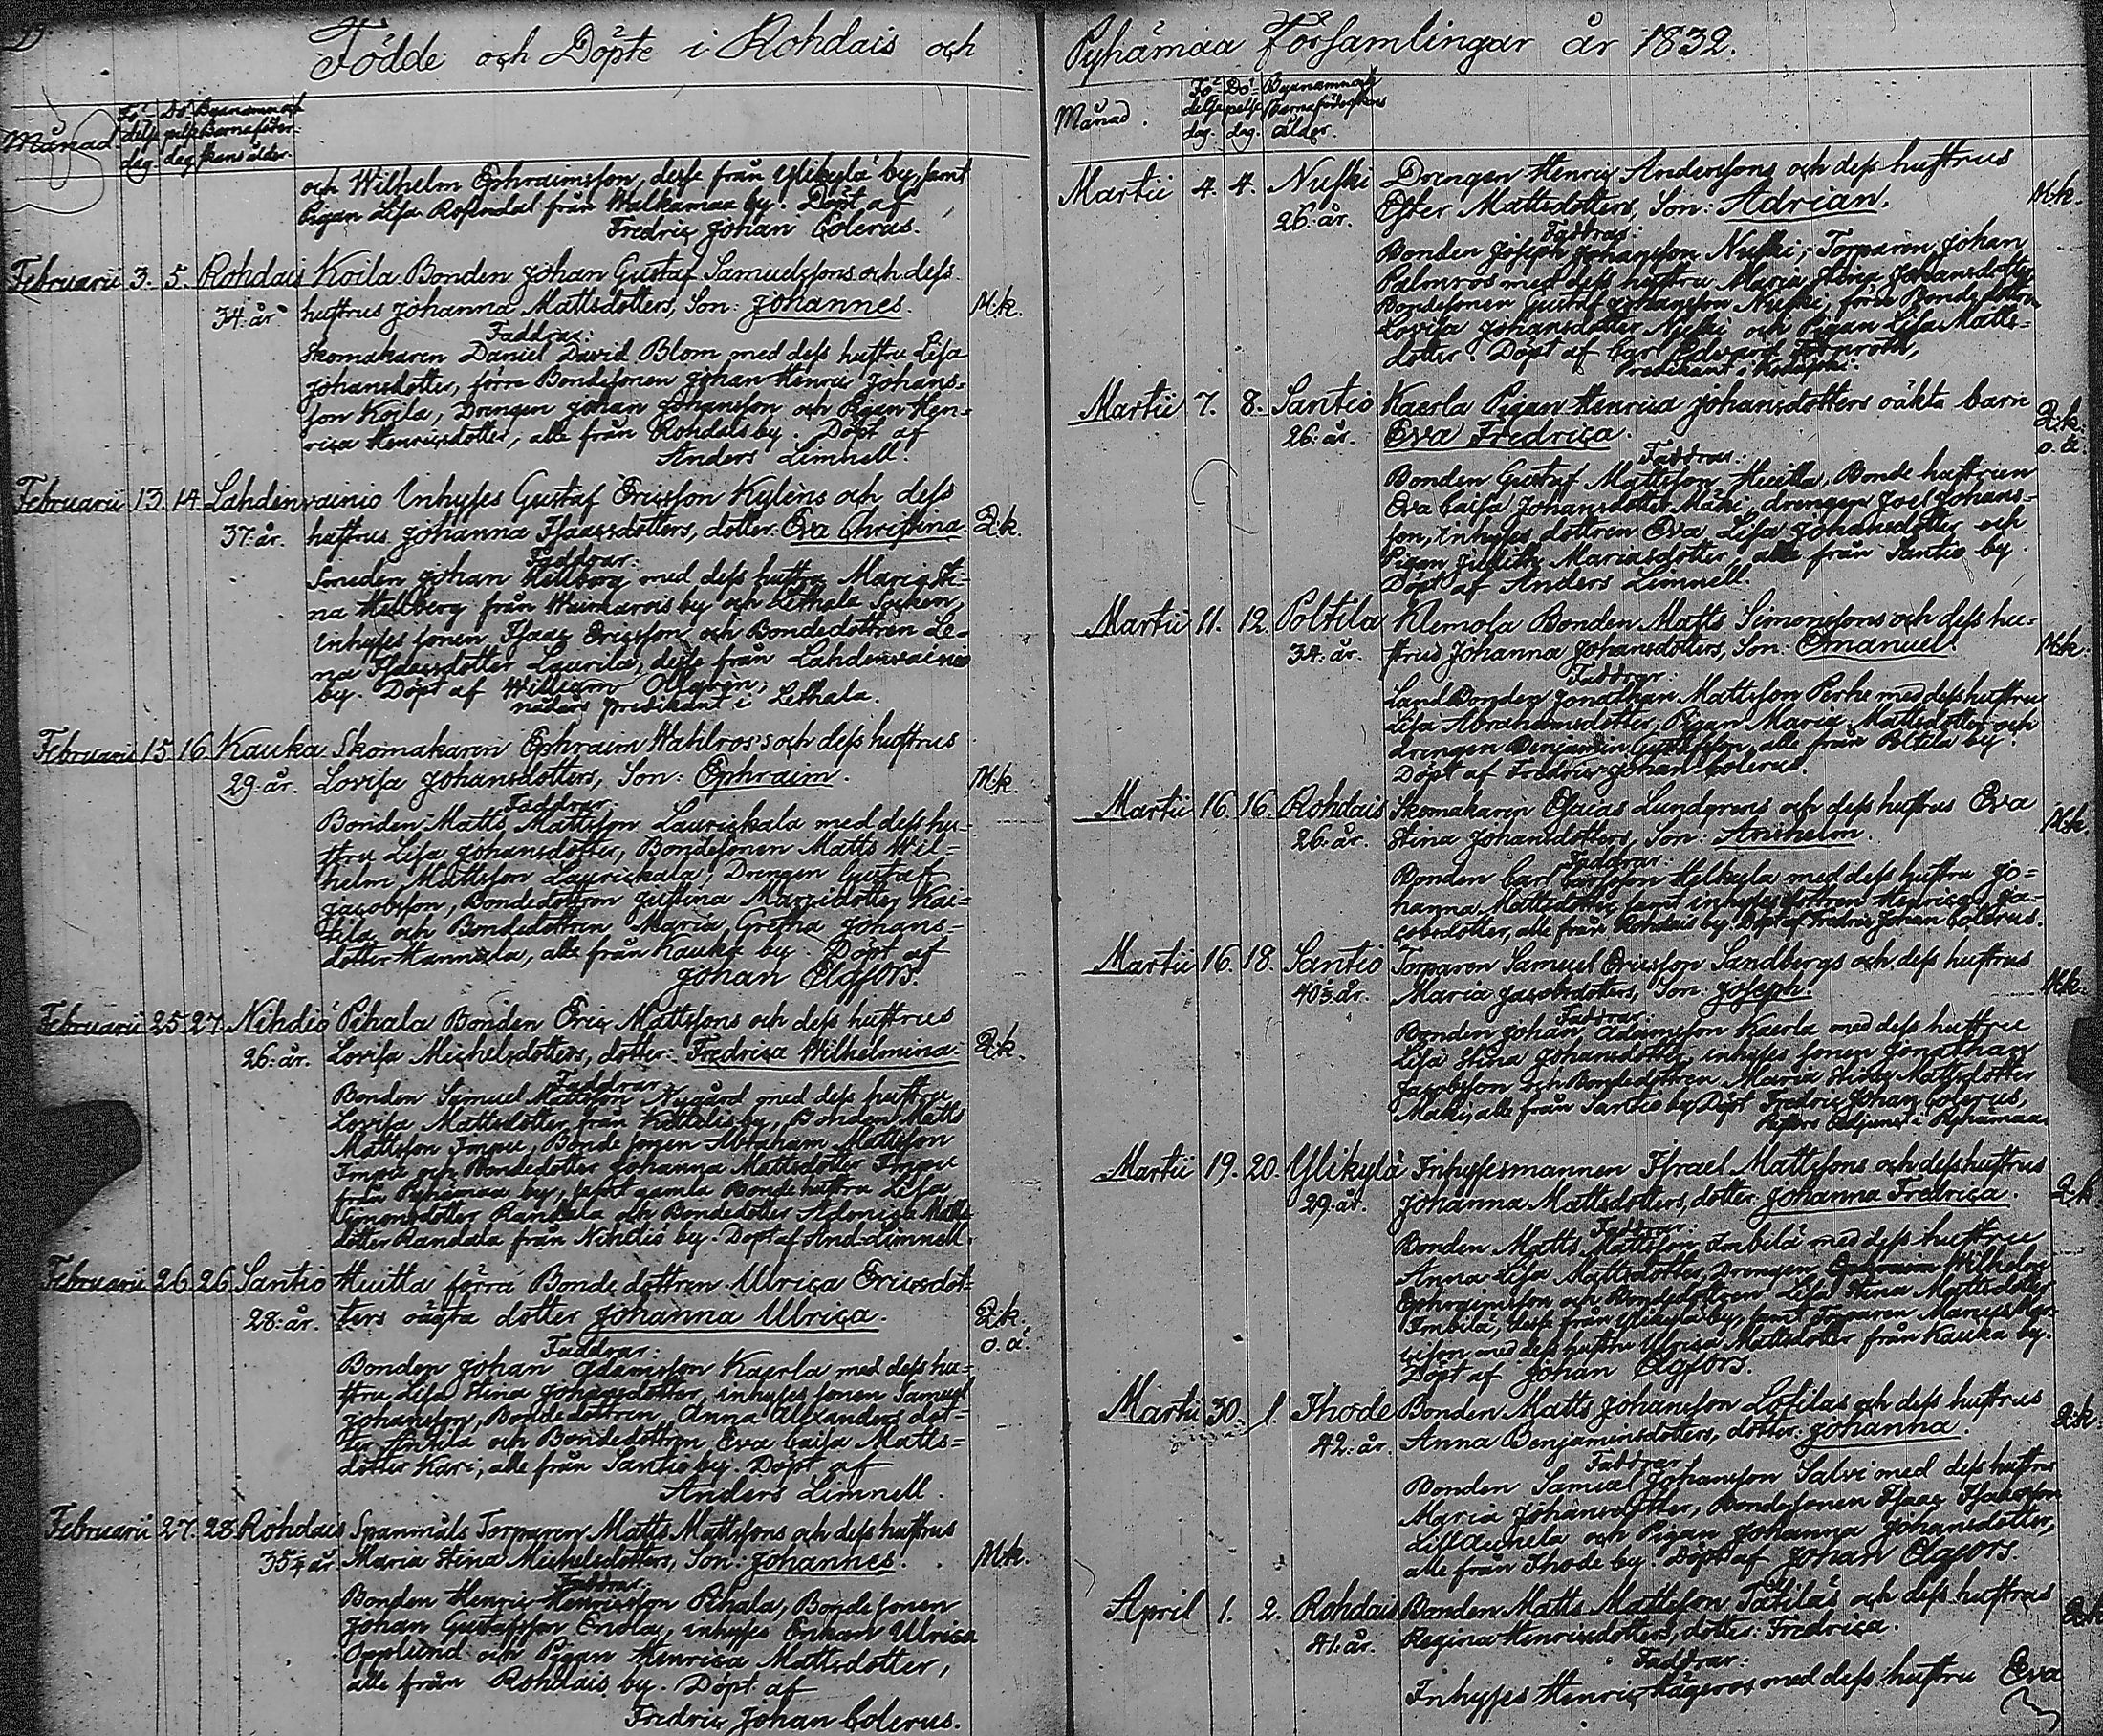 Födde och Döpte i Rohdais och
Månad Fö- delse dag. Dö- pelse dag Byanamn och Barnaföder- skans ålder.
och Wilhelm Ephraimsson, desse från Ylikylä by, samt
Pigan Lisa Rosendal från Walkamaa by. Döpt af
Fredric Johan Colerus.
Februarii 3. 5. Rohdais Koila Bonden Johan Gustaf Samuelssons och dess
34. år hustrus Johanna Mattsdotters, Son: Johannes. M.k.
Faddrar:
Skomakaren Daniel David Blom med dess hustru Lisa
Johansdotter, förra Bondesonen Johan Henric Johans-
son Koila, Drengen Johan Johansson och Pigan Hen-
rica Henricsdotter, alle från Rohdais by. Döpt af
Anders Limnell.
Februarii 13. 14. Lahdenvainio Inhyses Gustaf Ericsson Kyléns och dess
37. år. hustrus Johanna Isaacsdotters, dotter: Eva Christina. Q.k.
Faddrar:
Smeden Johan Hellberg med dess hustru Maria Sti-
na Hellberg från by och Lethala Socken,
Inhyses sonen Isaac Ericsson och Bondedottren Le-
na Isaacsdotter Laurila, desse från Lahdenvainio
by. Döpt af William
nåders predikant i Lethala.
Februarii 15. 16. Kauka Skomakaren Ephraim Wahlros's och dess hustrus
29. år. Lovisa Johansdotters, Son: Ephraim. M.k.
Faddrar:
Bonden Matts Mattsson Laurickala med dess hu-
stru Lisa Johansdotter, Bondesonen Matts Wil-
helm Mattsson Laurickala, Drengen Gustaf
Jacobsson, Bondedottren Justina Kai-
tila och Bondedottren Maria Gretha Johans-
dotter Hannula, alle från Kauka by. Döpt af
Johan Elgfors.
Februarii 25. 27. Nihdiö Pihala Bonden Eric Mattssons och dess hustrus
26. år. Lovisa Michelsdotters, dotter: Fredrica Wilhelmina. Q.k.
Faddrar:
Bonden Samuel Mattsson Nygård med dess hustru
Lovisa Mattsdotter från Kettelis by, Bonden Matts
Mattsson Impu, Bonde sonen Abraham Mattsson
Impu och Bondedotter Johanna Mattsdotter Impu
från Pyhämaa by, samt gamla Bonde hustru Lisa
Simonsdotter Randala och Bondedotter Matts
dotter Randala från Nihdiö by. Döpt af And. Limnell.
Februarii 26. 26. Santio Huitla förra Bonde dottren Ulrica Ericsdot-
28. år. ters oägta dotter Johanna Ulrica. Q.k.
o. ä.
Faddrar:
Bonden Johan Adamsson Kaerla med dess hu-
stru Lisa Stina Johansdotter, inhyses sonen Samuel
Johansson, Bondedottren Anna Alexanders dot-
ter Antila och Bondedottren Eva Caisa Matts-
dotter Kari, alle från Santio by. Döpt af
Anders Limnell.
Februarii 27. 28. Rohdais Spanmåls Torparen Matts Mattssons och dess hustrus
35½ år. Maria Stina Michelsdotters, Son: Johannes. M.k.
Faddrar:
Bonden Henric Henricsson Pihala, Bonde sonen
Johan Gustafsson Endla, inhyses Enkan Ulrica
Opplund och Pigan Henrica Mattsdotter,
alle från Rohdais by. Döpt af
Fredric Johan Colerus.
Pyhämaa Församlingar år 1832.
Månad. Fö- delse dag. Dö- pelse dag. Byanamn och Barnaföderskans ålder.
Martii 4. 4. Nuski Drengen Henric Anderssons och dess hustrus
26. år. Ester Mattsdotters, Son: Adrian. M.k.
Faddrar:
Bonden Joseph Johansson Nuski, Torparen Johan
Palmros med dess hustru Maria Johansdotter
Bondesonen Gustaf Johansson Nuski, förra Bondedottren
Lovisa Johansdotter Nuski och Pigan Lisa Matts-
dotter. Döpt af Carl Edvard
Predikant i
Martii 7. 8. Santio Kaerla Pigan Henrica Johansdotters oäkta barn
26. år. Eva Fredrica. Q.k.
o. ä.
Faddrar:
Bonden Gustaf Mattsson Huitla, Bonde hustrun
Eva Caisa Johansdotter Mäki, drengen Joel Johans-
son, Inhyses dottren Eva Lisa Johansdotter och
Pigan Judith Mariasdotter, alle från Santio by.
Döpt af Anders Limnell.
Martii 11. 12. Poltila Klemola Bonden Matts Simonssons och dess hu-
34. år. strus Johanna Johansdotters, Son: Emanuel. M.k.
Faddrar:
LandBonden Jonathan Mattsson Perhe med dess hustru
Lisa Abrahamsdotter, Pigan Maria Mattsdotter och
drengen Benjamin Gustafsson, alle från Poltila by.
Döpt af Fredric Johan Colerus.
Martii 16. 16. Rohdais Skomakaren Esaias Lundgrens och dess hustrus Eva
26. år. Stina Johansdotters, Son: Anshelm. M.k.
Faddrar:
Bonden Carl Carlsson Helkyla med dess hustru Jo-
hanna Mattsdotter, samt inhyses dottren Henrica Ja-
cobsdotter, alle från Rohdais by. Döpt af Fredric Johan Colerus.
Martii 16. 18. Santio Torparen Samuel Ericsson Sandbergs och dess hustrus
40½ år. Maria Jacobsdotters, Son: Joseph. M.k.
Faddrar:
Bonden Johan Adamsson Kaerla med dess hustru
Lisa Stina Johansdotter, inhyses sonen Jonathan
Jacobsson och Bondedottren Maria Stina Mattsdotter
Mäki, alle från Santio by. Döpt Fredric Johan Colerus,
Pastors Adjunct i Pyhämaa.
Martii 19. 20. Ylikylä Inhysesmannen Israel Mattssons och dess hustrus
29. år. Johanna Mattsdotters, dotter: Johanna Fredrica. Q.k.
Faddrar:
Bonden Matts Mattsson Imbilä med dess hustru
Anna Lisa Mattsdotter, Drengen Wilhelm
Ephraimsson och Bondedottren Lisa Stina Mattsdotter
Imbilä, desse från Ylikylä by, samt Torparen Marcus Mar-
cusson med dess hustru Ulrica Mattsdotter från Kauka by.
Döpt af Johan Elgfors.
Martii 30. 1. Ihode Bonden Matts Johansson Lofilas och dess hustrus
42. år. Anna Benjaminsdotters, dotter: Johanna. Q.k.
Faddrar
Bonden Samuel Johansson Salvi med dess hustru
Maria Johansdotter, Bondesonen Isaac Isaacsson
och Pigan Johanna Johansdotter,
alle från Ihode by. Döpt af Johan Elgfors.
April 1. 2. Rohdais Bonden Matts Mattsson Tätiläs och dess hustrus
41. år. Regina Henricsdotters, dotter: Fredrica. Q.k.
Faddrar:
Inhyses Henric Hägeros med dess hustru Eva